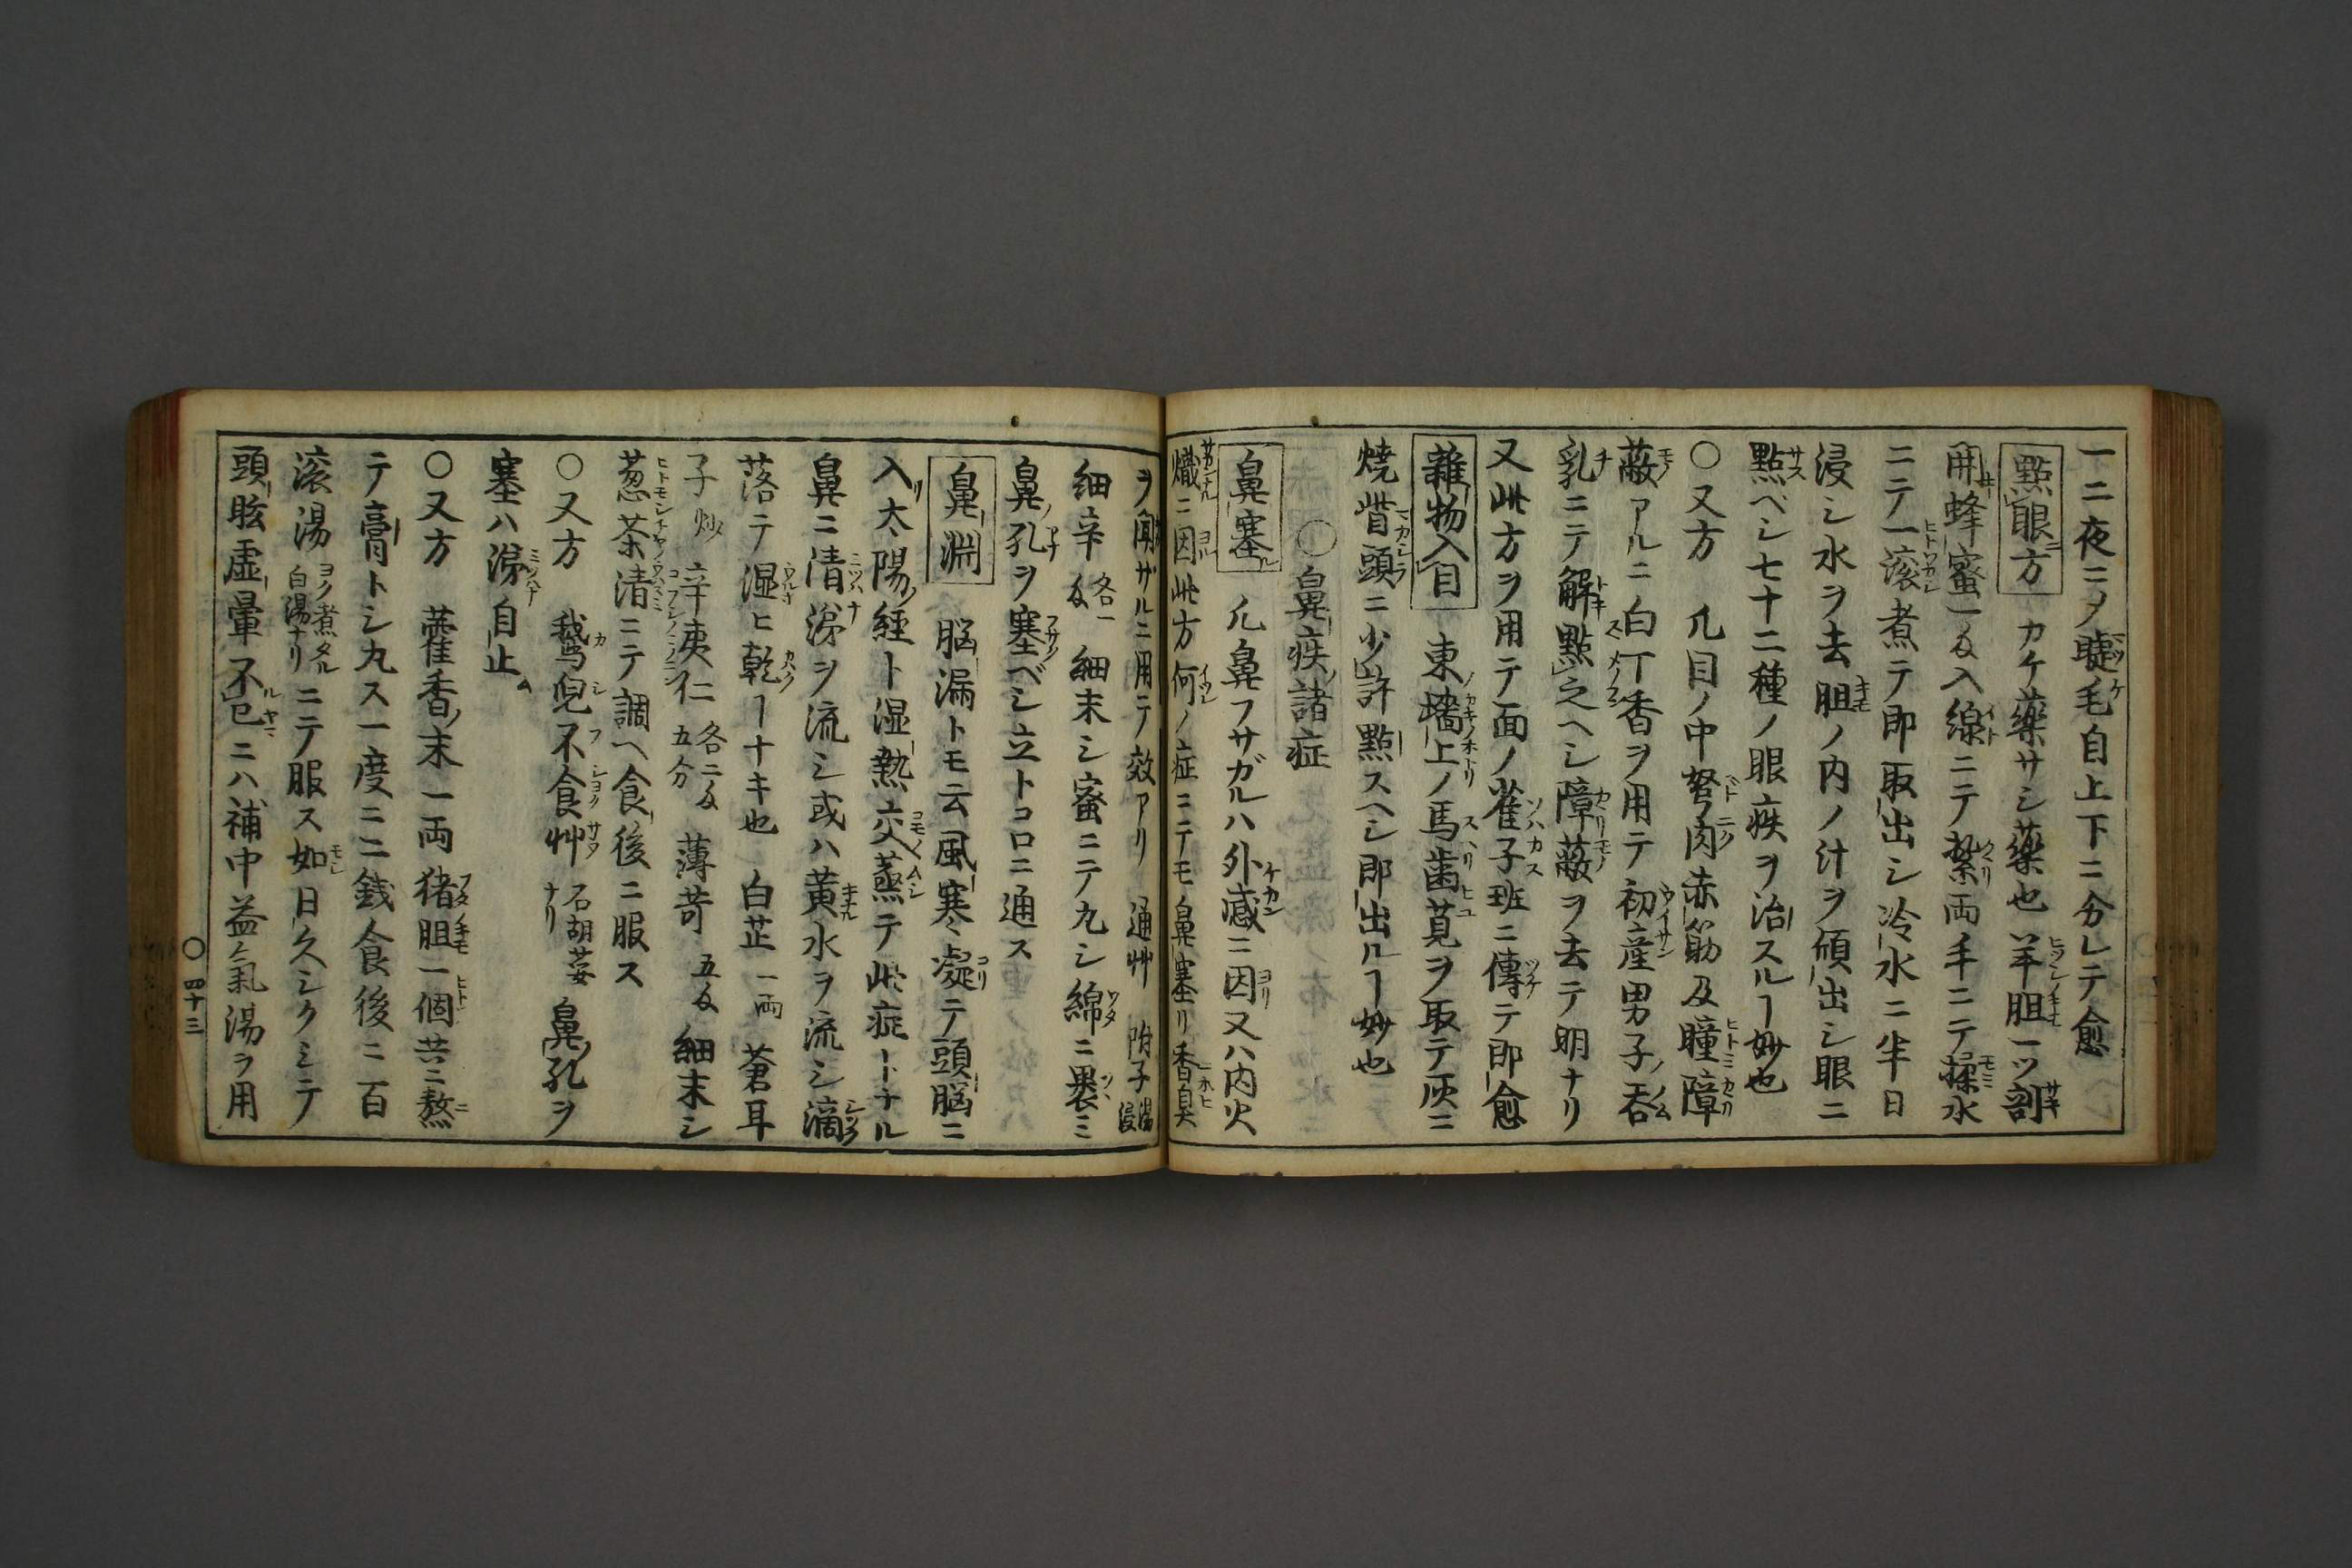 一二夜ニメ睫毛自上下ニ分レテ愈
點眼方 カケ藥サシ藥也 羊胆一ツ剖
開蜂蜜一匁入線ニテ繋両手ニテ揉水
ニテ一滚煮テ即取出シ冷水ニ半日
浸シ水ヲ去胆ノ内ノ汁ヲ傾出シ眼ニ
點ベシ七十二種ノ眼疾ヲ治スルヿ妙也
○又方 凡目ノ中弩肉赤筋及瞳障
蔽アルニ白丁香ヲ用テ初産男子ノ吞
乳ニテ解點之ヘシ障蔽ヲ去テ明ナリ
又此方ヲ用テ面ノ雀子班ニ傳テ即愈
雜物入目 東墻上ノ馬歯莧ヲ取テ灰ニ
焼 頭ニ少許點スヘシ即出ルヿ妙也
○鼻疾諸症
鼻塞 凡鼻フサガルハ外感ニ因又ハ内火
熾ニ因此方何ノ症ニテモ鼻塞リ香臭
ヲ聞ザルニ用テ效アリ 通艸 附子湯浸
細辛各一匁 細末シ蜜ニテ丸シ綿ニ裹ミ
鼻孔ヲ塞ベシ立トコロニ通ス
鼻淵 脳漏トモ云風寒凝テ頭脳ニ
入太陽ノ経ト湿熱交蒸テ此症トナル
鼻ニ清涕ヲ流シ或ハ黄水ヲ流シ滴
落テ湿ヒ乾ヿナキ也 白芷一両 蒼耳
子炒 辛夷仁各二匁五分 薄苛 五匁 細末シ
葱茶清ニテ調ヘ食後ニ服ス
○又方 鵞兒不食艸石胡荽ナリ 鼻孔ヲ
塞ハ涕自止ム
○又方 藿香ノ末一両 猪胆一個共ニ熬
テ膏トシ丸ス一度ニ二銭食後ニ百
滚湯ヨク煮タル白湯ナリニテ服ス如日久シクシテ
頭眩虚暈不已ニハ補中益氣湯ヲ用
○四十三